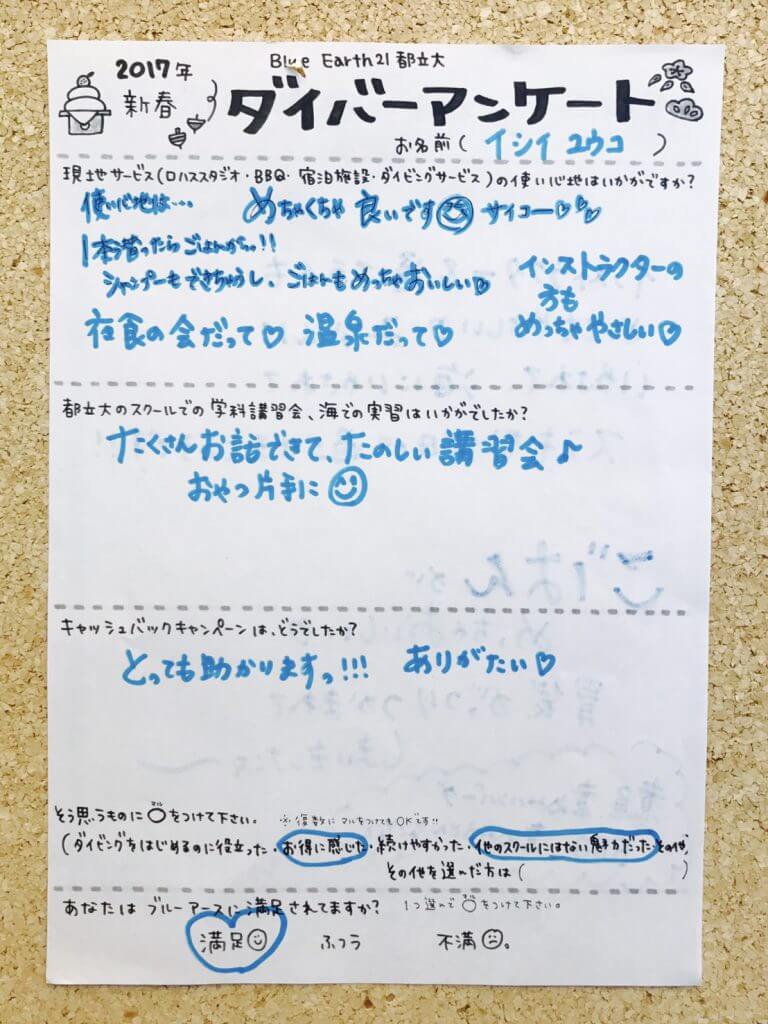 Blue Earth21 都立大
2017年
新春
ダイバーアンケート
お名前( イシイ ユウコ )
現地サービス(ロハススタジオ・BBQ・宿泊施設・ダイビングサービス)の使い心地はいかがですか?
使い心地は… めちゃくちゃ 良いです サイコー♡♡♡
1本潜ったらごはんが…!!
シャンプーもできちゃうし、ごはんもめっちゃおいしい♡
インストラクターの
方も
めっちゃやさしい♡
夜食の会だって♡ 温泉だって♡
都立大のスクールでの学科講習会、海での実習はいかがでしたか?
たくさんお話できて、たのしい講習会♪
おやつ片手に
キャッシュバックキャンペーンは、どうでしたか?
とっても助かりますっ!!! ありがたい♡
そう思うものに〇をつけて下さい。 ※複数にマルをつけてもOKです!!
(ダイビングをはじめるのに役立った・お得に感じた・続けやすかった・他のスクールにはない魅力だった・その他)
その他を選んだ方は( )
あなたは ブルーアースに満足されてますか? 1つ選んで〇をつけて下さい。
満足 ふつう 不満。